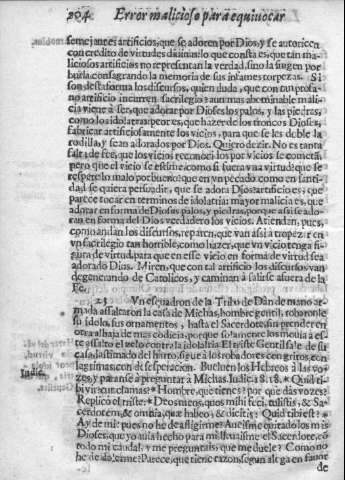 204 Error malicioso para equiuocar
semejantes artificios, que se adoren por Dios, y se autoricen
con credito de virtudes dâmna lo que consta es, que tan ma-
liciosos artificios no representan la verdad, sino la fingen por
burla consagrando la memoria de sus infames torpezas. Si
son desta forma los discursos, quien duda, que con tan profa-
no artificio incurren sacrilegio? aun mas abominable mali-
cia viene à ser, que adorar por Dioses los palos, y las piedras,
como los idolatras; peor es, que hazer de los troncos Dioses,
fabricar artificiosamente los vicios, para que se les doble la
rodilla, y sean adorados por Dios. Quiero dezir. No es tanta
falta de fee, que los vicios reconocidos por vicios se cometã,
pero que el vicio se estime, como si fuera vna virtud: que se
respete lo malo por bueno: que en vn pecado como en santi-
dad se quiera persuadir, que se adora Dios: artificio es, que
parece tocar en terminos de idolatria: mayor malicia es, que
adorar en forma de Dios los palos, y piedras, porque assi se ado-
ran en forma del Dios verdadero los vicios. Atiendan, pues,
como andan los discursos, reparen, que van assi a tropezar en
vn sacrilegio tan horrible, como hazer, que vn vicio tenga fi-
gura de virtud, para que en esse vicio en forma de virtud sea
adorado Dios. Miren, que con tal artificio los discursos van
degenerando de Catolicos, y caminan à salirse afuera de la
Fe.
23 Vn esquadron de la Tribo de Dân de mano ar-
mada assaltaron la casa de Michas, hombre gentil, robaronle
su idolo, sus ornamentos, hasta el Sacerdote, sin pender en
otra alhaja de mas codicia, porque solamente los mouia a es-
te assalto el zelo contra la idolatria. El triste Gentil sale de su
casa, lastimado del hurto, sigue à los robadores con gritos, con
lagrimas, con desesperacion. Bueluen los Hebreos à las vo-
Iudic.
zes, y paranse à preguntar à Michas. Iudic. 18. 18. * Quid ti-
bi vis? cur clamas? * Hombre, que tienes? por que das vozes?
Replicò el triste. * Deos meos, quos mihi feci, tulistis, & Sa-
cerdotem, & omnia, quæ habeo, & dicitis: Quid tibi est? *
Ay de mi: pues no he de afligirme? Aueisme quitado los mis
Dioses, que yo auia hecho para mi, lleuaisme el Sacerdote, cõ
todo mi caudal, y me preguntais, que me duele? Como no
he de quexarme? Parece, que tiene razon, segun alega en fauor
de